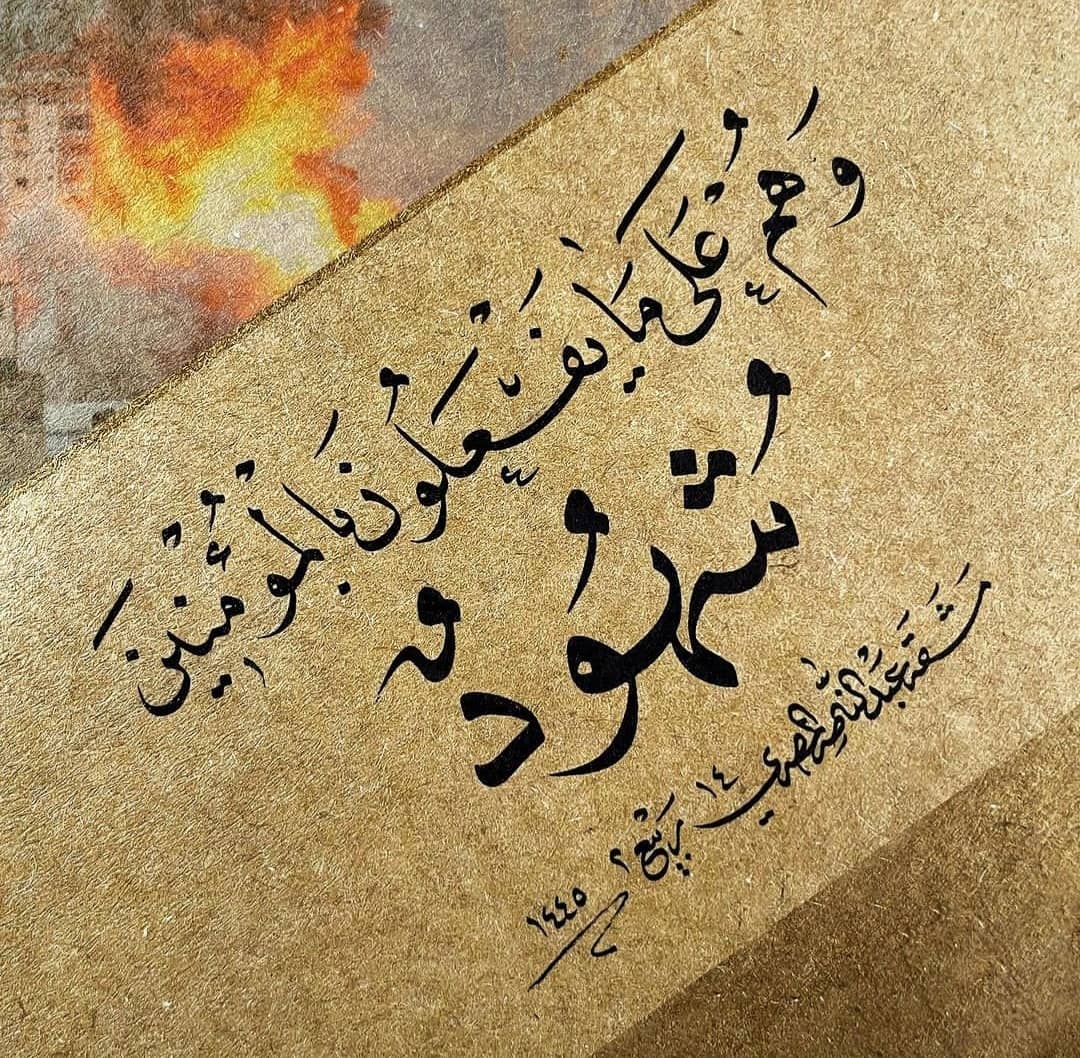 وَهُمْ عَلَىٰ مَا يَفْعَلُونَ بِالْمُؤْمِنِينَ
شُهُودٌ
مشقه عبد الناصر المصري ١٤ ربيع ٢
١٤٤٥